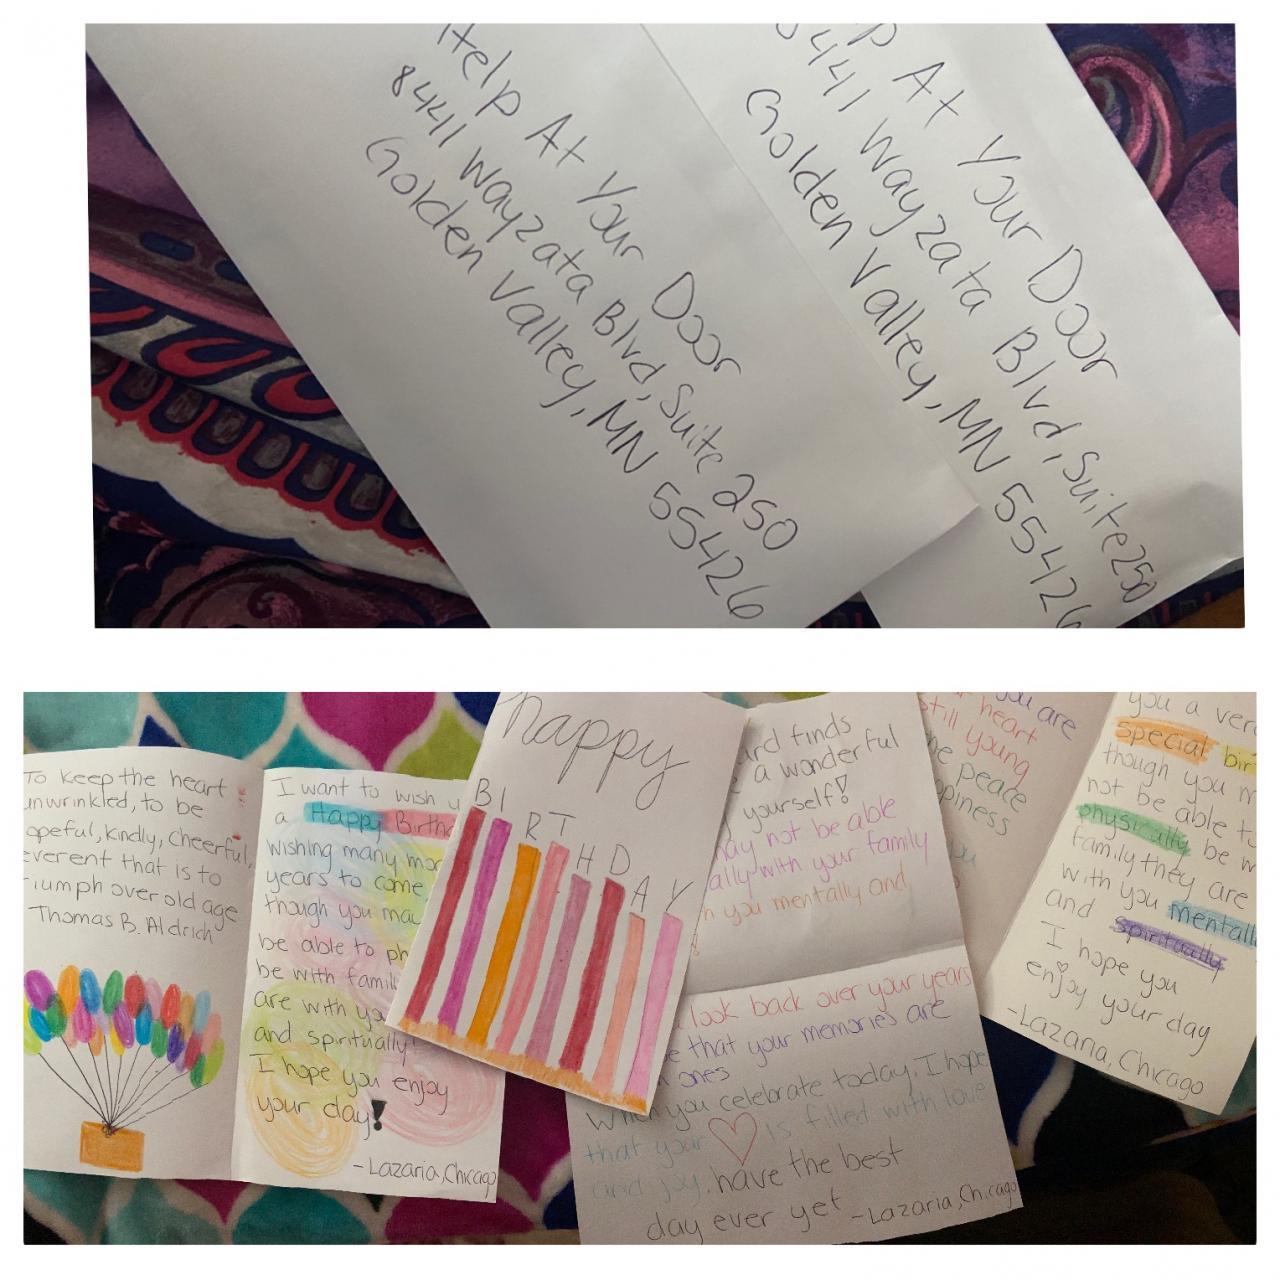 Help At Your Door
8441 Wayzata Blvd, Suite 250
Golden Valley, MN 55426
At Your Door
8441 Wayzata Blvd, Suite 250
Golden Valley, MN 55426
To keep the heart
unwrinkled, to be
hopeful, kindly, cheerful,
reverent that is to
triumph over old age
Thomas B. Aldrich
I want to wish
a Happy Birth
wishing many mor
years to come
though you ma
be able to ph
be with famil
are with yo
and spiritually!
I hope you enjoy
your day!
-Lazaria, Chicago
happy
BIRTHDAY
card finds
a wonderful
yourself!
may not be able
ally with your family
you mentally and
look back over your years
that your memories are
ones
When you celebrate today, I hope
that your ♡ is filled with love
and joy. have the best
day ever yet -Lazaria, Chicago
you are
heart
still young
peace
ppiness
you
you a very
special bir
though you m
not be able t
physically be w
family they are
with you mentall
and spiritually
I hope you
enjoy your day
-Lazaria, Chicago